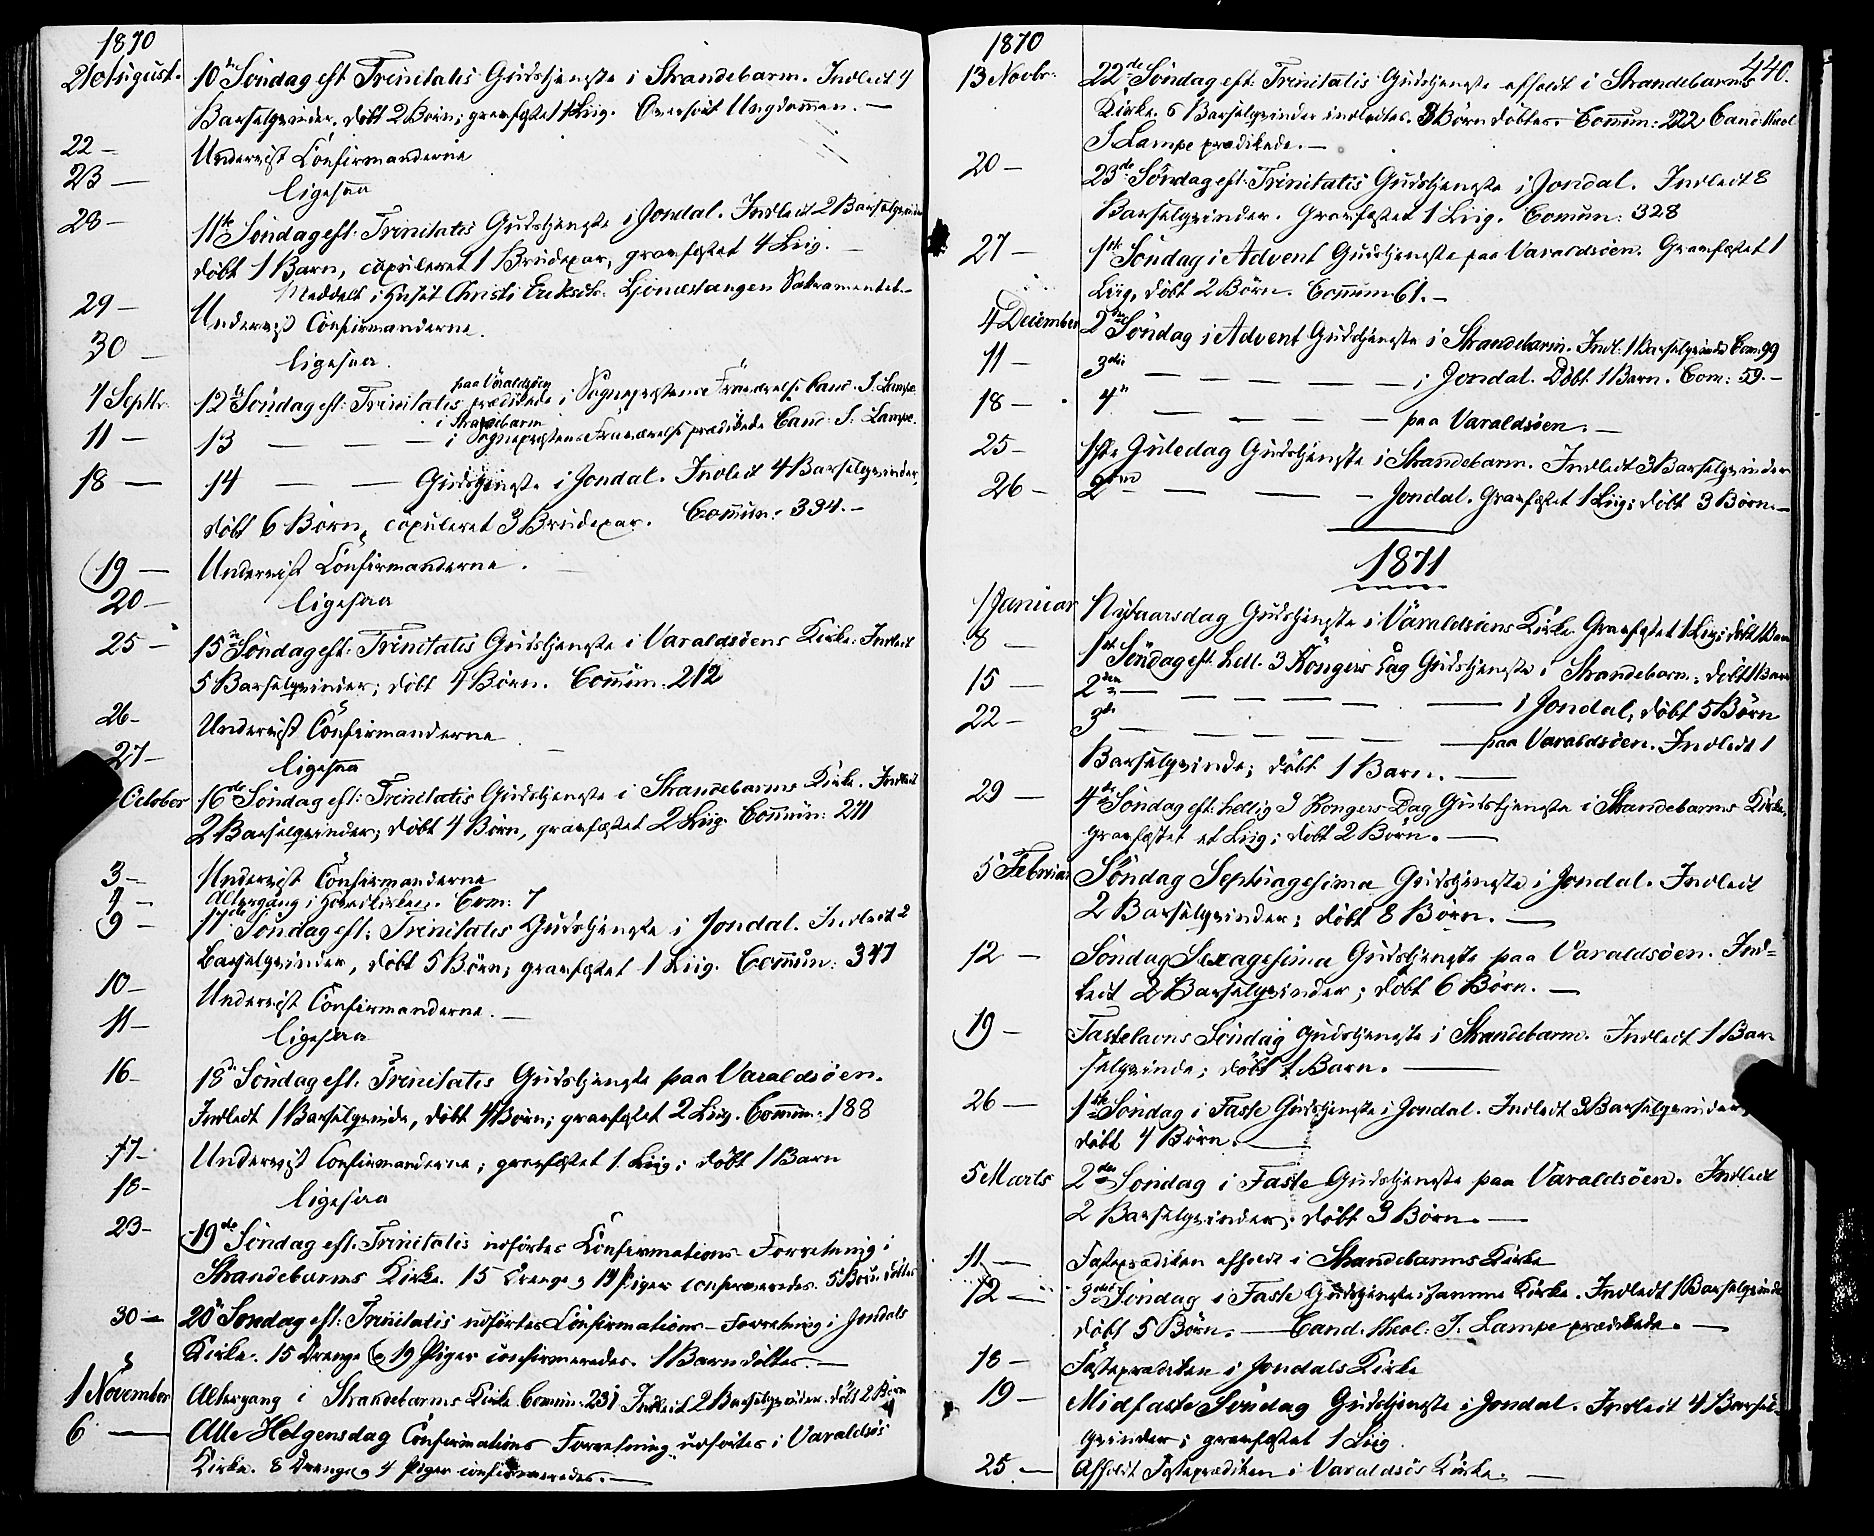 1870
21 August. 10de Søndag eft Trinitatis Gudstjeneste i Strandebarm. Indledt 4
Barselqvinder, døbt 2 Børn; gravfæstet 1 Liig. Overhørt Ungdommen. —
22 — Underviist Confirmanderne
23 — ligesaa
28 — 11te Søndag eft: Trinitatis Gudstjeneste i Jondal. Indledt 2 Barselqvinder
døbt 1 Barn, copuleret 1 Brudepar, gravfæstet 4 Liig. —
Meddelt i Huset Christi Eriksdtr: Sakramentet. —
29 — Underviist Confirmanderne.
30 — ligesaa.
4 Septbr. 12te Søndag eft: Trinitatis paa Varaldsöen prædikede i Sognepræstens Fraværelse Cand. J. Lampe
11 — 13 — — — i Strandebarm i Sognepræstens Fraværelse prædikede Cand: J. Lampe.
18 — 14 — — Gudstjeneste i Jondal. Indledt 4 Barselqvinder,
døbt 6 Børn, copuleret 3 Brudepar. Commun: 334. —
19 — Underviist Confirmanderne.
20 — ligesaa
25 — 15de Søndag eft: Trinitatis Gudstjeneste i Varaldsöens Kirke: Indledt
5 Barselqvinder; døbt 4 Børn. Commun. 212
26 — Underviist Confirmanderne
27 — ligesaa
October 16de Søndag eft: Trinitatis Gudstjeneste i Strandebarms Kirke. Indledt
2 Barselqvinder; døbt 4 Børn, gravfæstet 2 Liig. Commun: 211
3 — Underviist Confirmanderne
7 — Altergang i Hovedkirken. Com: 7
9 — 17de Søndag eft: Trinitatis Gudstjeneste i Jondal. Indledt 2
Barselqvinder, døbt 5 Børn; gravfæstet 1 Liig. Commun: 347
10 — Underviist Confirmanderne. —
11 — ligesaa
16 — 18de Søndag eft. Trinitatis Gudstjeneste paa Varaldsöen.
Indledt 1 Barselqvinde, døbt 4 Børn; gravfæstet 2 Liig. Commun: 188
17 — Underviist Confirmanderne; gravfæstet 1 Liig; døbt 1 Barn
18 — ligesaa
23 — 19de Søndag eft. Trinitatis udførtes Confirmations-Forretning i
Strandebarms Kirke. 15 Drenge og 19 Piger confirmeredes. 5 Børn døbtes
30 — 20de Søndag eft: Trinitatis udførtes Confirmations-Forretning i Jondals
Kirke. 15 Drenge og 19 Piger confirmeredes. 1 Barn døbtes. —
1 November Altergang i Strandebarms Kirke Commun: 231 Indledt 2 Barselqvinder. døbt 2 Børn
6 — Alle Helgensdag Confirmations Forretning udførtes i Varaldsös
Kirke. 8 Drenge og 4 Piger confirmeredes. —
1870
440.
13 Novbr: 22de Søndag eft: Trinitatis Gudstjeneste afholdt i Strandebarms
Kirke. 6 Barselqvinder indledtes. 3 Børn døbtes. Commun: 222 Cand. theol
J. Lampe prædikede. —
20 — 23de Søndag eft: Trinitatis Gudstjeneste i Jondal. Indledt 8
Barselqvinder. Gravfæstet 1 Liig. Comun: 328
27 — 1ste Søndag i Advent Gudstjeneste paa Varaldsöen. Gravfæstet 1
Liig, døbt 2 Børn. Commun 61. —
4 December 2den Søndag i Advent Gudstjeneste i Strandebarm. Indl: 1 Barselqvinde Com: 99
11 — 3die — — — — — i Jondal. Døbt 1 Barn. Com: 59. —
18 — 4de — — — — paa Varaldsöen. —
25 — 1ste Juledag Gudstjeneste i Strandebarm. Indledt 3 Barselqvinder
26 — 2den — — — — Jondal. Gravfæstet 1 Liig; døbt 3 Børn. —
1871
1 Januar Nytaarsdag Gudstjeneste i Varaldsöens Kirke. Gravfæstet 1 Liig; døbt 1 Barn
8 — 1ste Søndag eft. hell. 3 Kongers Dag Gudstjeneste i Strandebarm; døbt 1 Barn
15 — 2den — — — — — i Jondal, døbt 5 Børn
22 — 3die — — — — — paa Varaldsöen. Indledt 1
Barselqvinde; døbt 1 Barn. —
29 — 4de Søndag eft: hellig 3 Kongers Dag Gudstjeneste i Strandebarms Kirke,
Gravfæstet et Liig; døbt 2 Børn. —
5 Februar Søndag Septuagesima Gudstjeneste i Jondal. Indledt
2 Barselqvinder; døbt 8 Børn. —
12 — Søndag Sexagesima Gudstjeneste paa Varaldsöen. Ind-
ledt 2 Barselqvinder; døbt 6 Børn. —
19 — Fastelavns Søndag Gudstjeneste i Strandebarm. Indledt 1 Bar-
selqvinde; døbt 1 Barn. —
26 — 1ste Søndag i Faste Gudstjeneste i Jondal. Indledt 3 Barselqvinder,
døbt 4 Børn. —
5 Marts 2den Søndag i Faste Gudstjeneste paa Varaldsöen. Indledt
2 Barselqvinder; døbt 3 Børn. —
11 — Fasteprædiken afholdt i Strandebarms Kirke
12 — 3die Søndag i Faste Gudstjeneste i samme Kirke. Indledt 1 Barselqvinde
døbt 5 Børn. — Cand. theol: J. Lampe prædikede. —
18 — Fasteprædiken i Jondals Kirke
19 — Midfaste Søndag Gudstjeneste i Jondal. Indledt 4 Barsel-
qvinder; gravfæstet 1 Liig.
25 — Afholdt Fasteprædiken i Varaldsös Kirke. —